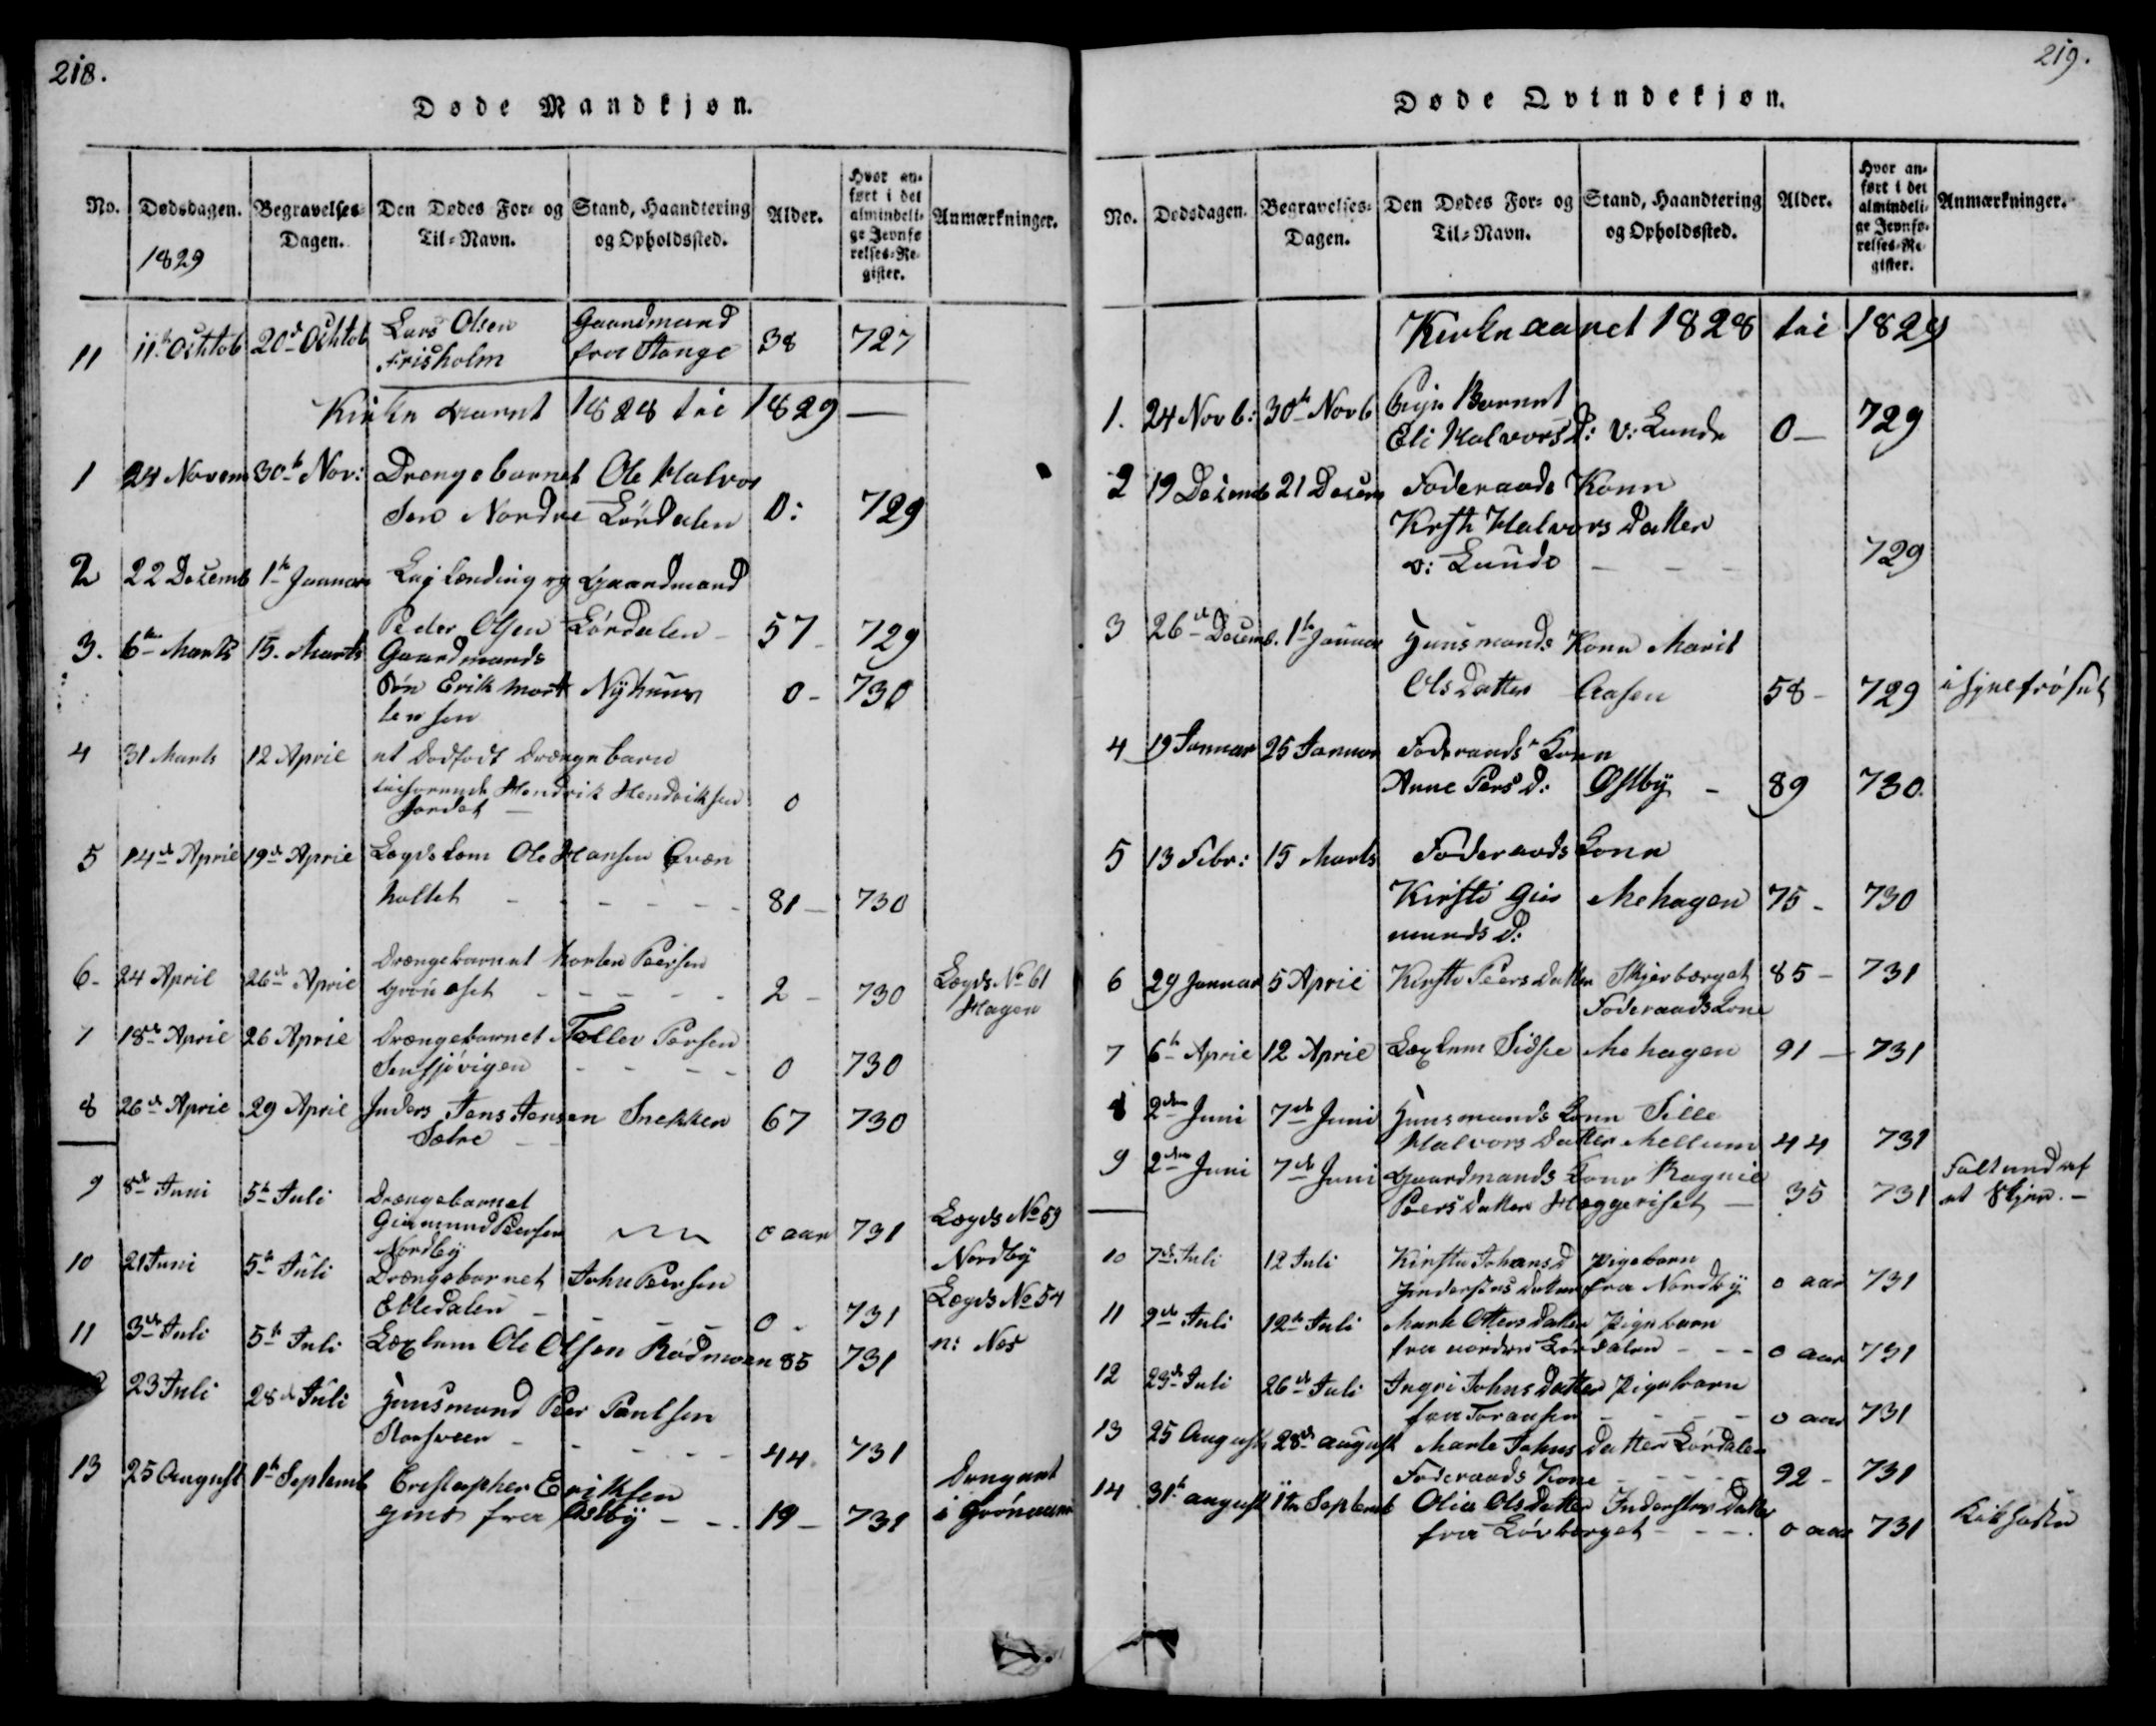 218.
Døde Mandkjøn.
No. Dødsdagen. Begravelses-Dagen. Den Dødes For- og Til-Navn. Stand, Haandtering og Opholdssted. Alder. Hvor anført i det almindelige Jevnførelses-Register. Anmærkninger.
1829
11 11te Ochtob 20de Ochtob Lars Olsen Gaardmand
Frisholm fra Stange 38 727
Kirke Aaret 1828 til 1829 —
1 24 Novem 30te Nov: Drengebarnet Ole Halvor
Sen Nordre Lørdalen 0: 729
2 22 Decemb 1te Januar Gaardmand
Peder Olsen Lørdalen - 57 - 729
3. 6te Marts 15. Marts Gaardmands
Søn Erik Mort Nyhuus 0 - 730
tensen
4 31 Marts 12 April et dødfødt Drængebarn
tilhørende Hendrik Hendriksen
Jordet — 0
5 14de April 19de April Lægdslem Ole Hansen Qvæn
holtet - - - - - 81 — 730
6- 24 April 26de April Drængebarnet Morten Peersen
Grønoset - - - - - 2 - 730 Lægds No 61
Hagen
7 18de April 26 April Drængebarnet Toller Persen
Sensjøvigen - - - - 0 730
8 26de April 29 April Inders Jens Jensen Snekker 67 730
Sætre — —
9 8de Juni 5te Juli Drængebarnet
Giermund Peersen 0 aar 731 Lægds No 59
Nordby Nordby
10 21 Juni 5te Juli Drængebarnet John Peersen
Elledalen - - - - 0 - 731 Lægds No 54
n: Næs
11 3de Juli 5te Juli Læxlem Ole Olsen Rødmoen 85 731
23 Juli 28de Juli Huusmand Peer Poulsen
Storsveen - - - - - 44 731
13 25 August 1te Septemb Cristopher Eriksen
fra Østby - - - 19 - 731
219.
Døde Qvindekjøn.
No. Dødsdagen. Begravelses-Dagen. Den Dødes For- og Til-Navn. Stand, Haandtering og Opholdssted. Alder. Hvor anført i det almindelige Jevnførelses-Register. Anmærkninger.
Kirke aaret 1828 til 1829
1. 24 Novb: 30te Novb Pige Barnet
Eli Halvorsd: v: Lunde 0 — 729
2 19 Decemb 21 Decem Foderaads Kone
Kirsti Halvors Datter
v: Lunde — — — 729
3 26de Decemb. 1te Januar Huusmands Kone Marit
Olsdatter Aasen 58 - 729 ihjelfrøset
4 19 Januar 25 Januar Foderaads Kone
Anne Persd: Østby - 89 730.
5 13 Febr: 15 Marts Foderaads Kone
Kirsti Gier Mehagen 75 - 730
mundsd:
6 29 Januar 5 April Kirsti Peersdatter Skjerbærget 85 - 731
Foderaadskone
7 6te April 12 April Læxlem Sidsel Mehagen 91 — 731
8 2den Juni 7de Juni Huusmands Kone Sille
Halvorsdatter Mellum 44 731
9 2den Juni 7de Juni Gaardmands Kone Ragnil
Peersdatter Hæggeriset — 35 731
10 7de Juli 12 Juli Kirstie Johansd Pigebarn
Indersters datter fra Nordby 0 aar 731
11 9de Juli 12te Juli Marte Ottersdatter Pigebarn
fra nordre Lørdalen - - - 0 aar 731
12 23de Juli 26de Juli Ingri Johnsdatter Pigebarn
fra Foraasen - - - - 0 aar 731
13 25 August 28de august Marte Johnsdatter Lørdalen
Foderaads Kone - - - - 92 - 731
14 31te august 1te Septemb Olia Olsdatter Inderster Datter
fra Løvberget - - - 0 aar 731